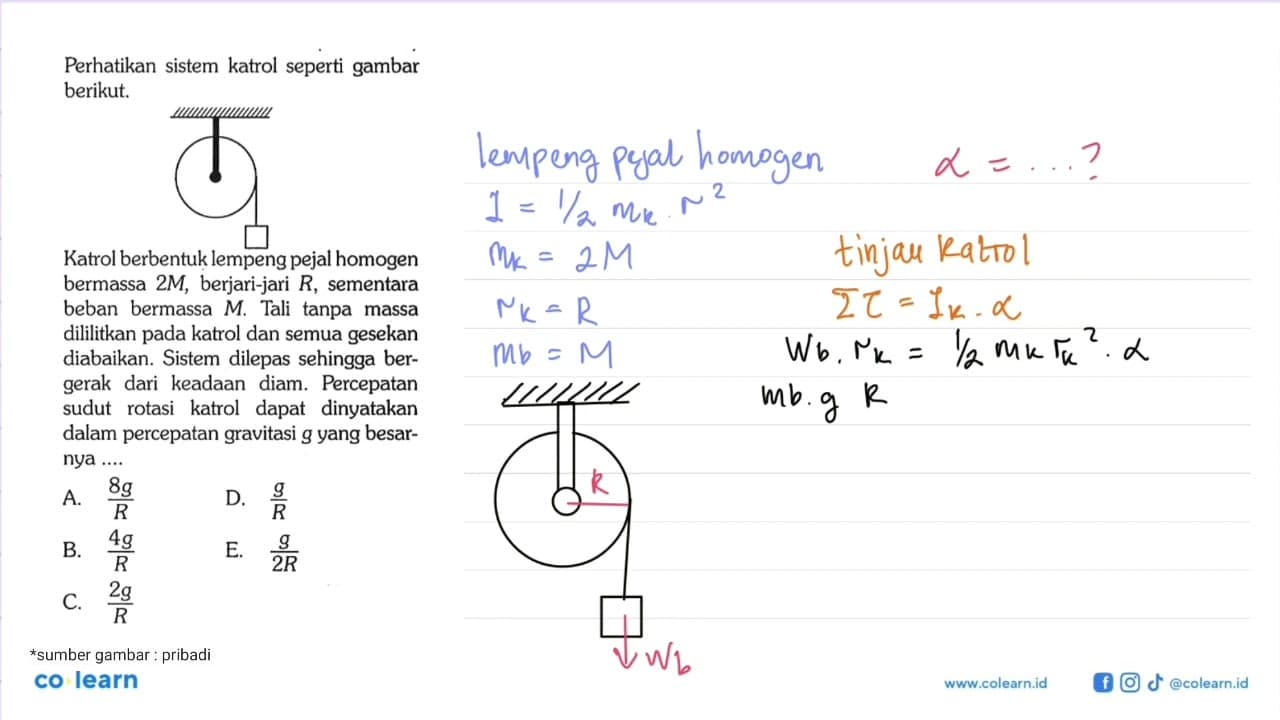 Perhatikan sistem katrol seperti gambar
berikut.
Katrol berbentuk lempeng pejal homogen
bermassa 2M, berjari-jari R, sementara
beban bermassa M. Tali tanpa massa
dililitkan pada katrol dan semua gesekan
diabaikan. Sistem dilepas sehingga ber-
gerak dari keadaan diam. Percepatan
sudut rotasi katrol dapat dinyatakan
dalam percepatan gravitasi g yang besar-
nya ....
A. 8g/R
B. 4g/R
C. 2g/R
D. g/R
E. g/2R
*sumber gambar : pribadi
co learn
lempeng pejal homogen
I = 1/2 mk . r²
mk = 2M
rk = R
mb = M
R
Wb
α = ...?
tinjau katrol
Στ = Ik . α
Wb . rk = 1/2 mk rk² . α
mb . g R
www.colearn.id
@colearn.id